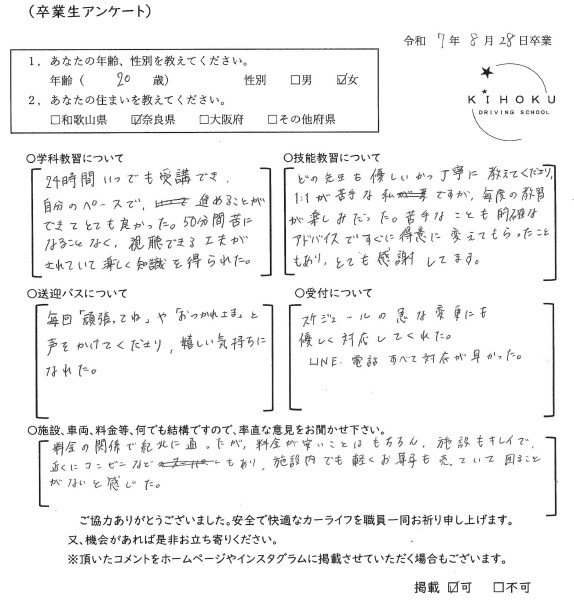 （卒業生アンケート）
令和 7年 8月 28日卒業
1，あなたの年齢、性別を教えてください。
年齢（ 20 歳） 性別 □男 ☑女
2，あなたの住まいを教えてください。
□和歌山県 ☑奈良県 □大阪府 □その他府県
KIHOKU
DRIVING SCHOOL
○学科教習について
24時間いつでも受講でき、
自分のペースで、進めることが
できてとても良かった。50分間苦に
なることなく、視聴できる工夫が
されていて楽しく知識を得られた。
○技能教習について
どの先生も優しいかつ丁寧に教えてくださり、
1:1が苦手な私ですが、毎度の教習
が楽しみだった。苦手なことも的確な
アドバイスですぐに得意に変えてもらったこと
もあり、とても感謝してます。
○送迎バスについて
毎回「頑張ってね」や「おつかれさま」と
声をかけてくださり、嬉しい気持ちに
なれた。
○受付について
スケジュールの急な変更にも
優しく対応してくれた。
LINE・電話 すべて対応が早かった。
○施設、車両、料金等、何でも結構ですので、率直な意見をお聞かせ下さい。
料金の関係で紀北に通ったが、料金が安いことはもちろん、施設もキレイで、
近くにコンビニなどもあり、施設内でも軽くお菓子も売っていて困ること
がないと感じた。
ご協力ありがとうございました。安全で快適なカーライフを職員一同お祈り申し上げます。
又、機会があれば是非お立ち寄りください。
※頂いたコメントをホームページやインスタグラムに掲載させていただく場合もございます。
掲載 ☑可 □不可